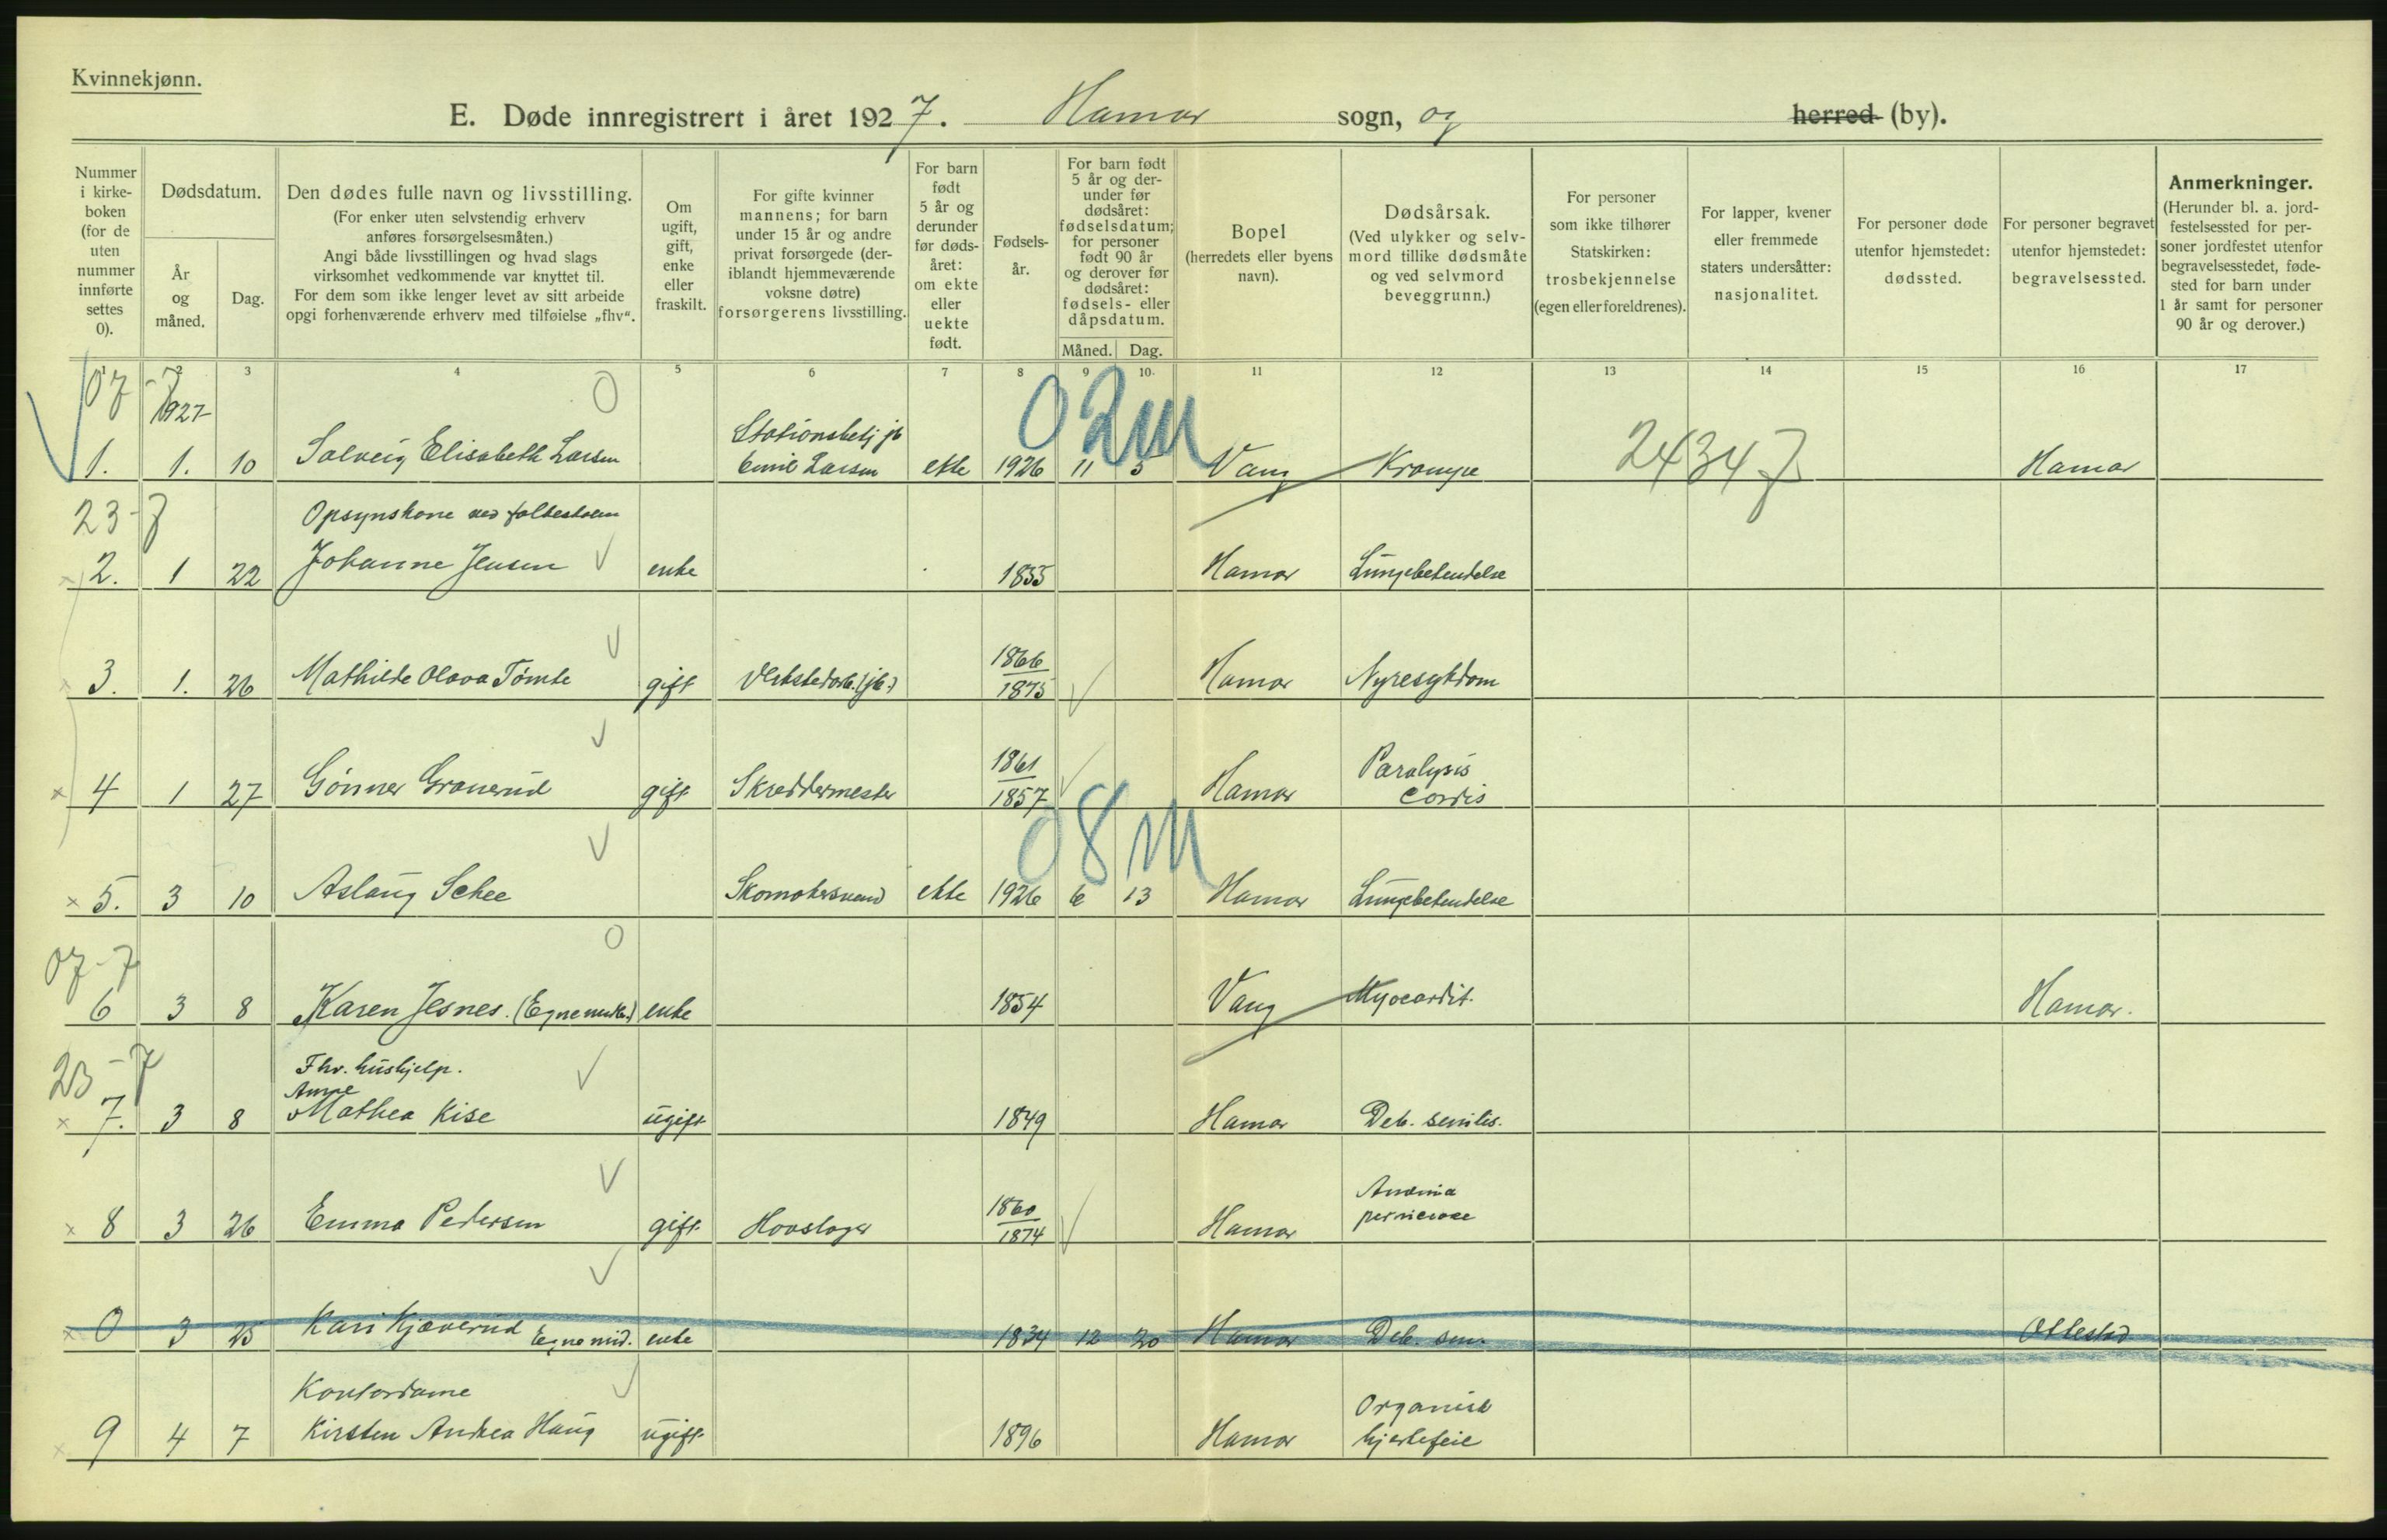 Kvinnekjønn.
E. Døde innregistrert i året 1927. Hamar sogn, og herred (by).
Nummer i kirkeboken (for de uten nummer innførte settes 0).
Dødsdatum.
År og måned.
Dag.
Den dødes fulle navn og livsstilling.
(For enker uten selvstendig erhverv anføres forsørgelsesmåten.)
Angi både livsstillingen og hvad slags virksomhet vedkommende var knyttet til.
For dem som ikke lenger levet av sitt arbeide opgi forhenværende erhverv med tilføielse „fhv“.
Om ugift, gift, enke eller fraskilt.
For gifte kvinner mannens; for barn under 15 år og andre privat forsørgede (deriblandt hjemmeværende voksne døtre) forsørgerens livsstilling.
For barn født 5 år og derunder før dødsåret: om ekte eller uekte født.
Fødselsår.
For barn født 5 år og derunder før dødsåret: fødselsdatum; for personer født 90 år og derover før dødsåret: fødsels- eller dåpsdatum.
Måned.
Dag.
Bopel
(herredets eller byens navn).
Dødsårsak.
(Ved ulykker og selvmord tillike dødsmåte og ved selvmord beveggrunn.)
For personer som ikke tilhører Statskirken: trosbekjennelse (egen eller foreldrenes).
For lapper, kvener eller fremmede staters undersåtter: nasjonalitet.
For personer døde utenfor hjemstedet: dødssted.
For personer begravet utenfor hjemstedet: begravelsessted.
Anmerkninger.
(Herunder bl. a. jordfestelsessted for personer jordfestet utenfor begravelsesstedet, fødested for barn under 1 år samt for personer 90 år og derover.)
1 2 3 4 5 6 7 8 9 10 11 12 13 14 15 16 17
07-7 1927 O 02m
Stationsbetj jb
1. 1. 10 Solveig Elisabeth Larsen Emil Larsen ekte 1926 11 5 Vang Krampe 24347 Hamar
23-7 Opsynskone ved
2. 1 22 Johanne Jensen enke 1855 Hamar Lungebetendelse
1866
3. 1. 26 Mathilde Olava Tømte gift Verkstedarb. (jb.) 1875 Hamar Nyresykdom
1861 Paralysis
4 1 27 Gunner Granerud gift Skreddermester 1857 Hamar cordis
08m
5. 3 10 Aslaug Schee Skomakersvend ekte 1926 6 13 Hamar Lungebetendelse
07-7 O
6 3 8 Karen Jesnes. (Egne midl.) enke 1854 Vang Myocardit. Hamar.
23-7 Fhv. hushjelp.
Anne
7. 3 8 Mathea Kise ugift 1849 Hamar Deb. senilis.
1860 Anæmia
8 3 26 Emma Pedersen gift Hovslager 1874 Hamar perniciose
0 3 25 Kari Kjæverud Egne mid. enke 1834 12 20 Hamar Deb. sen. Ottestad
Kontordame Organisk
9 4 7 Kirsten Andrea Haug ugift 1896 Hamar hjertefeil